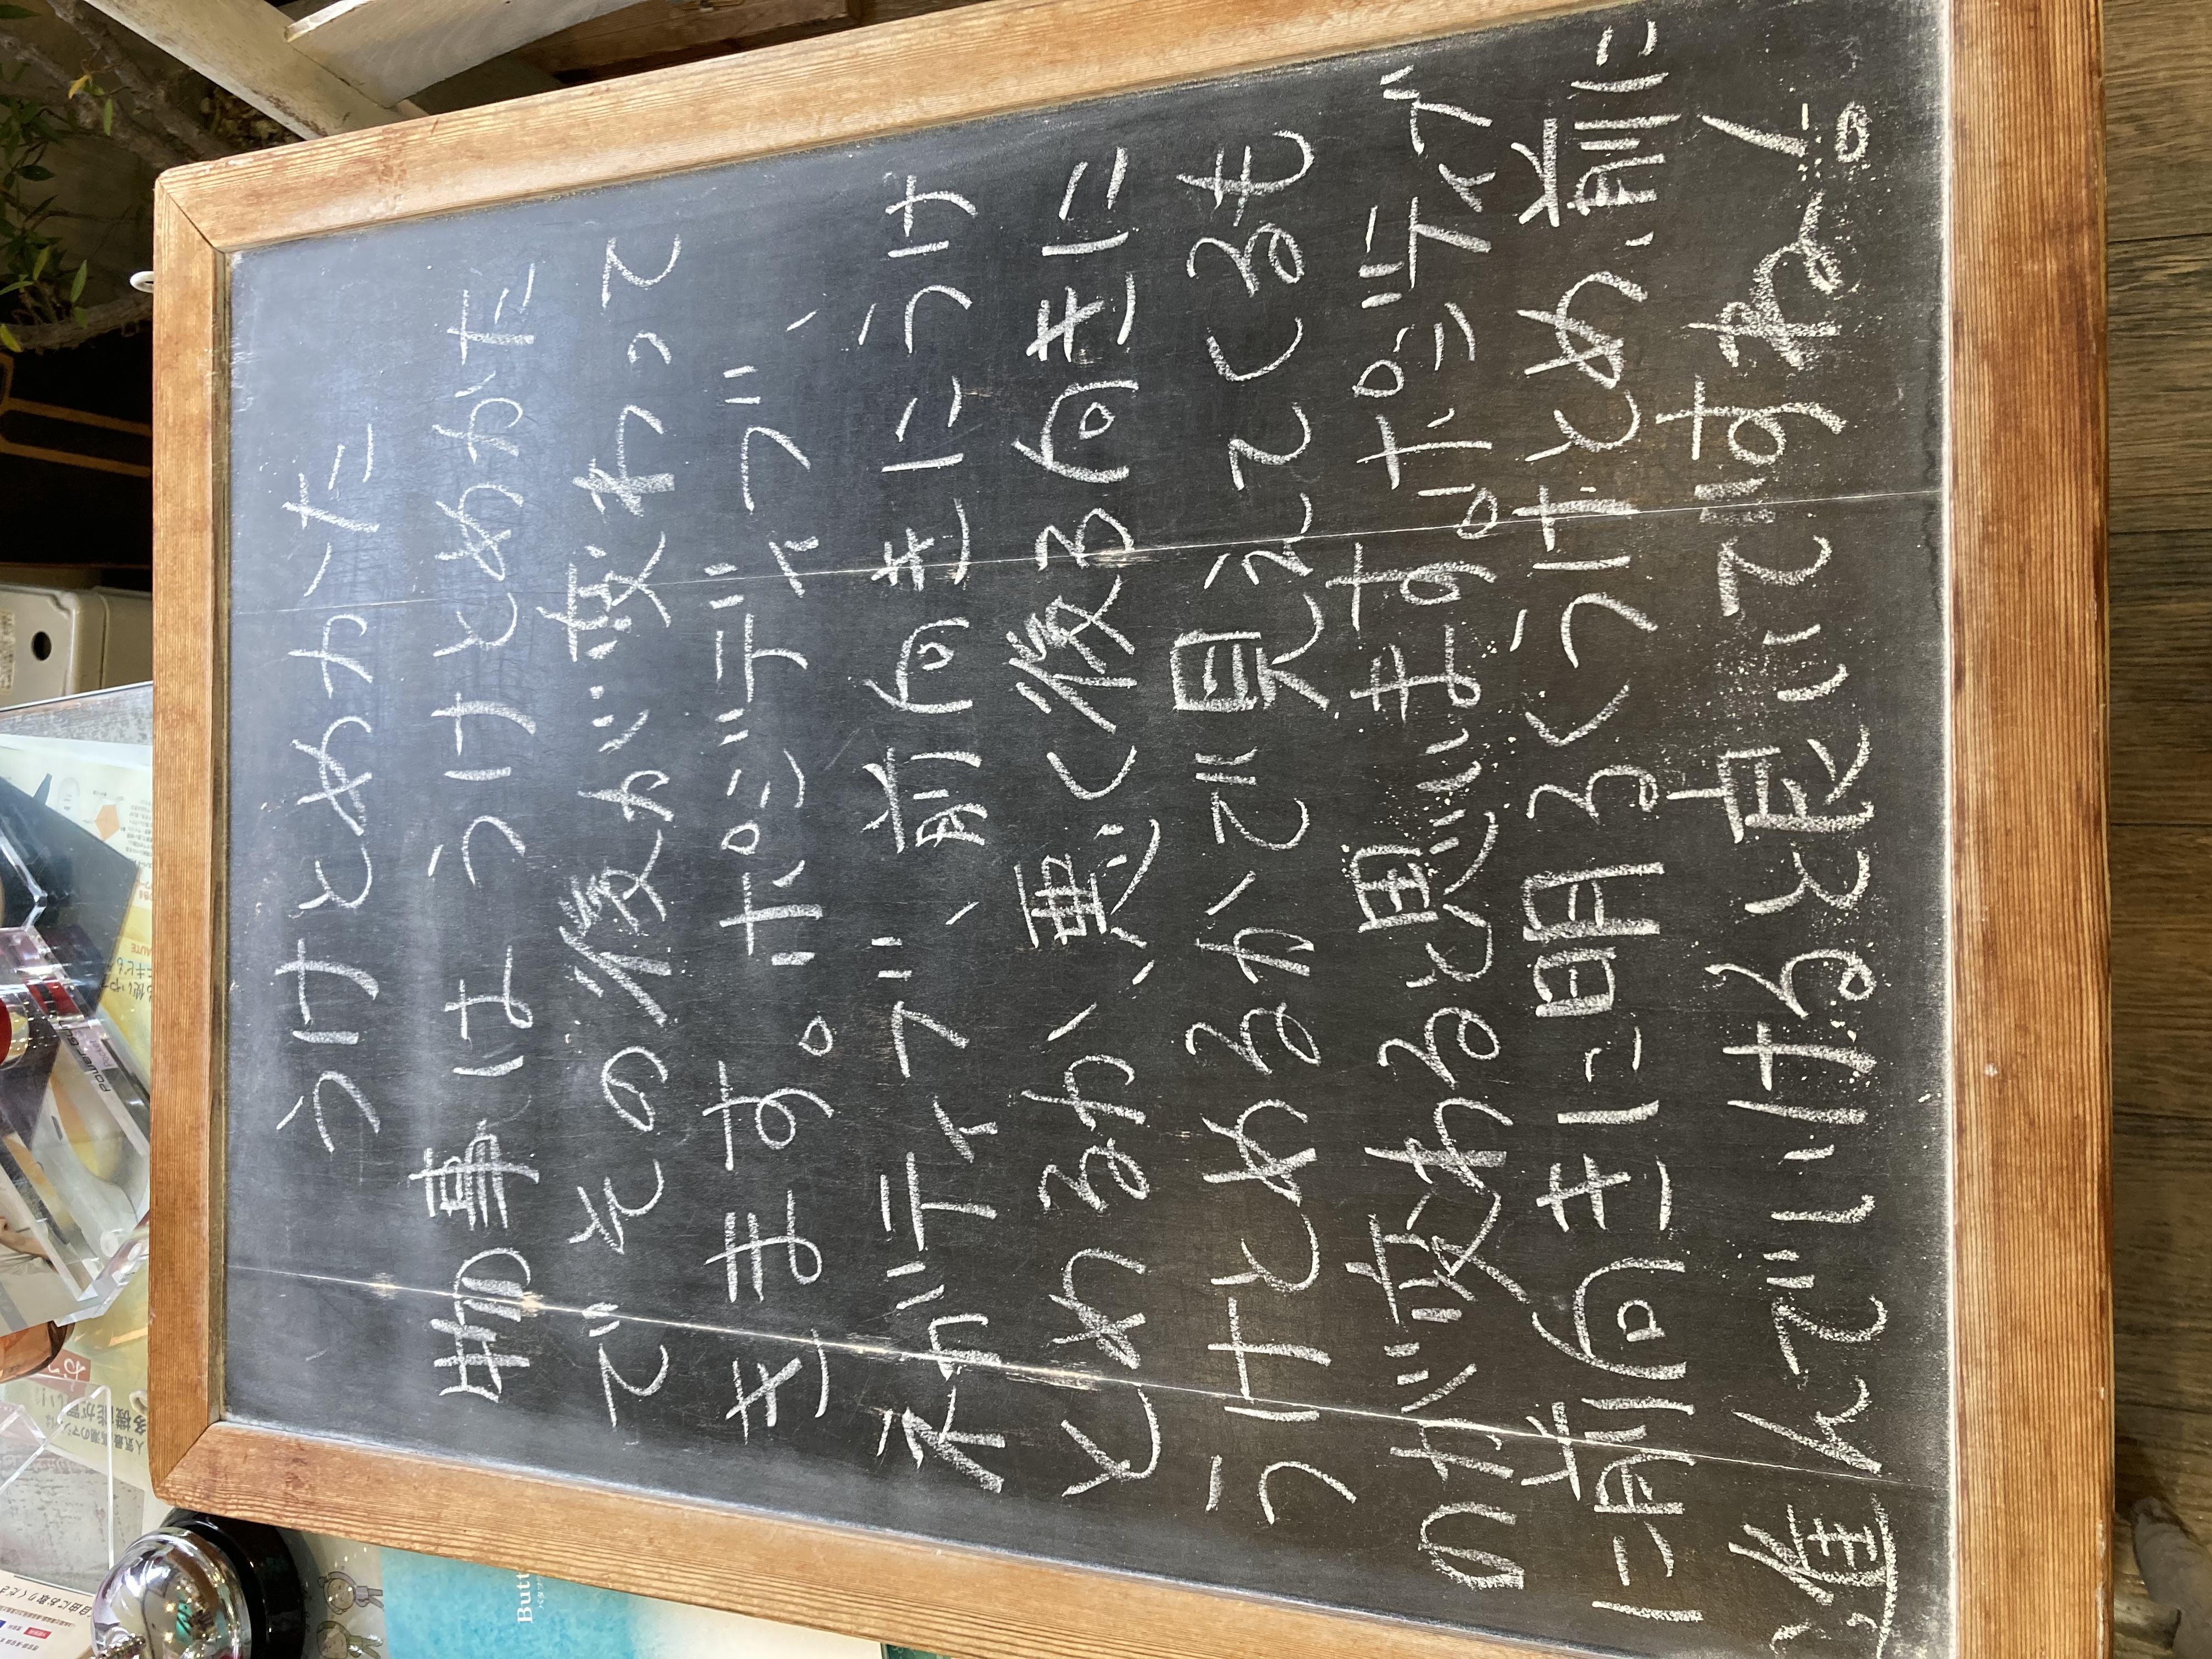 うけとめかた
物事は うけとめかた
でその後が変わって
きます。ポジティブ、
ネガティブ、前向きにうけ
とめるか、悪く後ろ向きに
うけとめるかで見えてくるも
のが変わると思います。ポジティブ
に前向きに明るくうけとめ、前に
進んでいけると良いですねー。
Butt